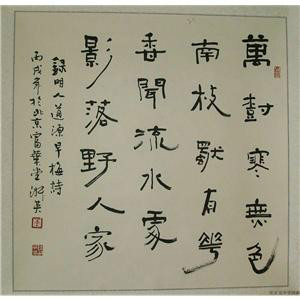 萬樹寒無色
南枝獨有花
香聞流水處
影落野人家
錄明人道源早梅詩
丙戌年於北京富華堂 淑英